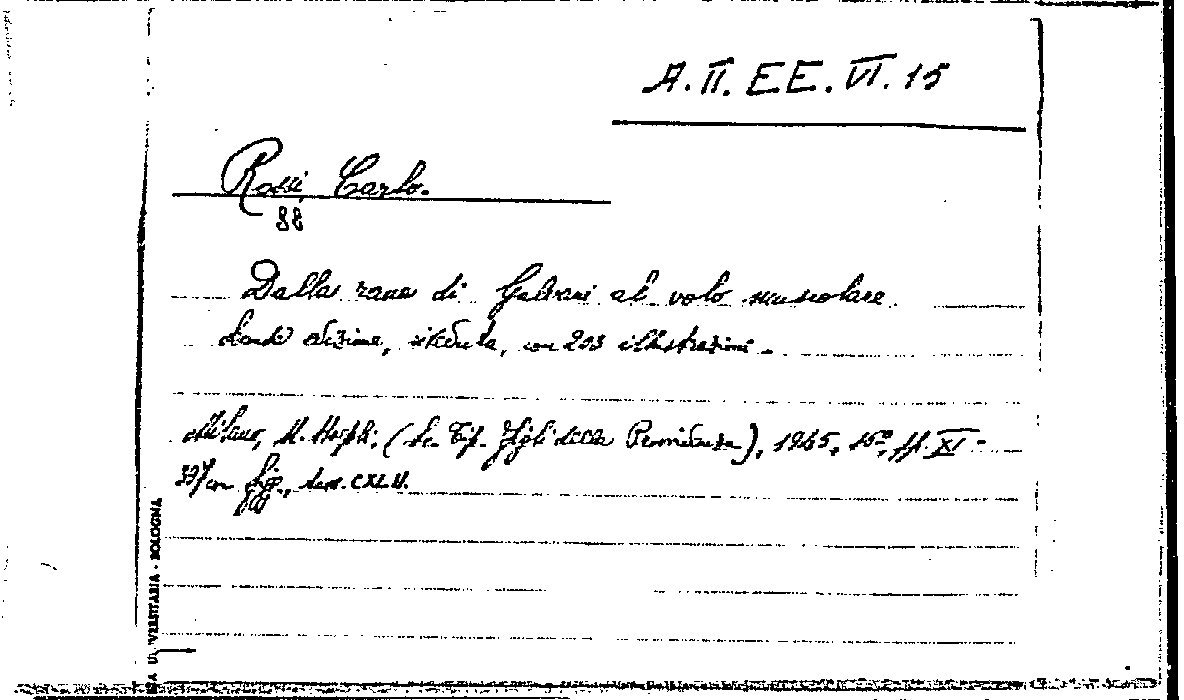 A.II. EE. VI. 15
Rossi, Carlo.
88
Dalla rana di Galvani al volo muscolare.
edizione, con 203 illustrazioni.
Milano, U. Hoepli, (Tip. Figli della Provvidenza), 1945, 15°, pp. XI-
337 con figg., tavv. CXLIV.
VERSITARIA - BOLOGNA